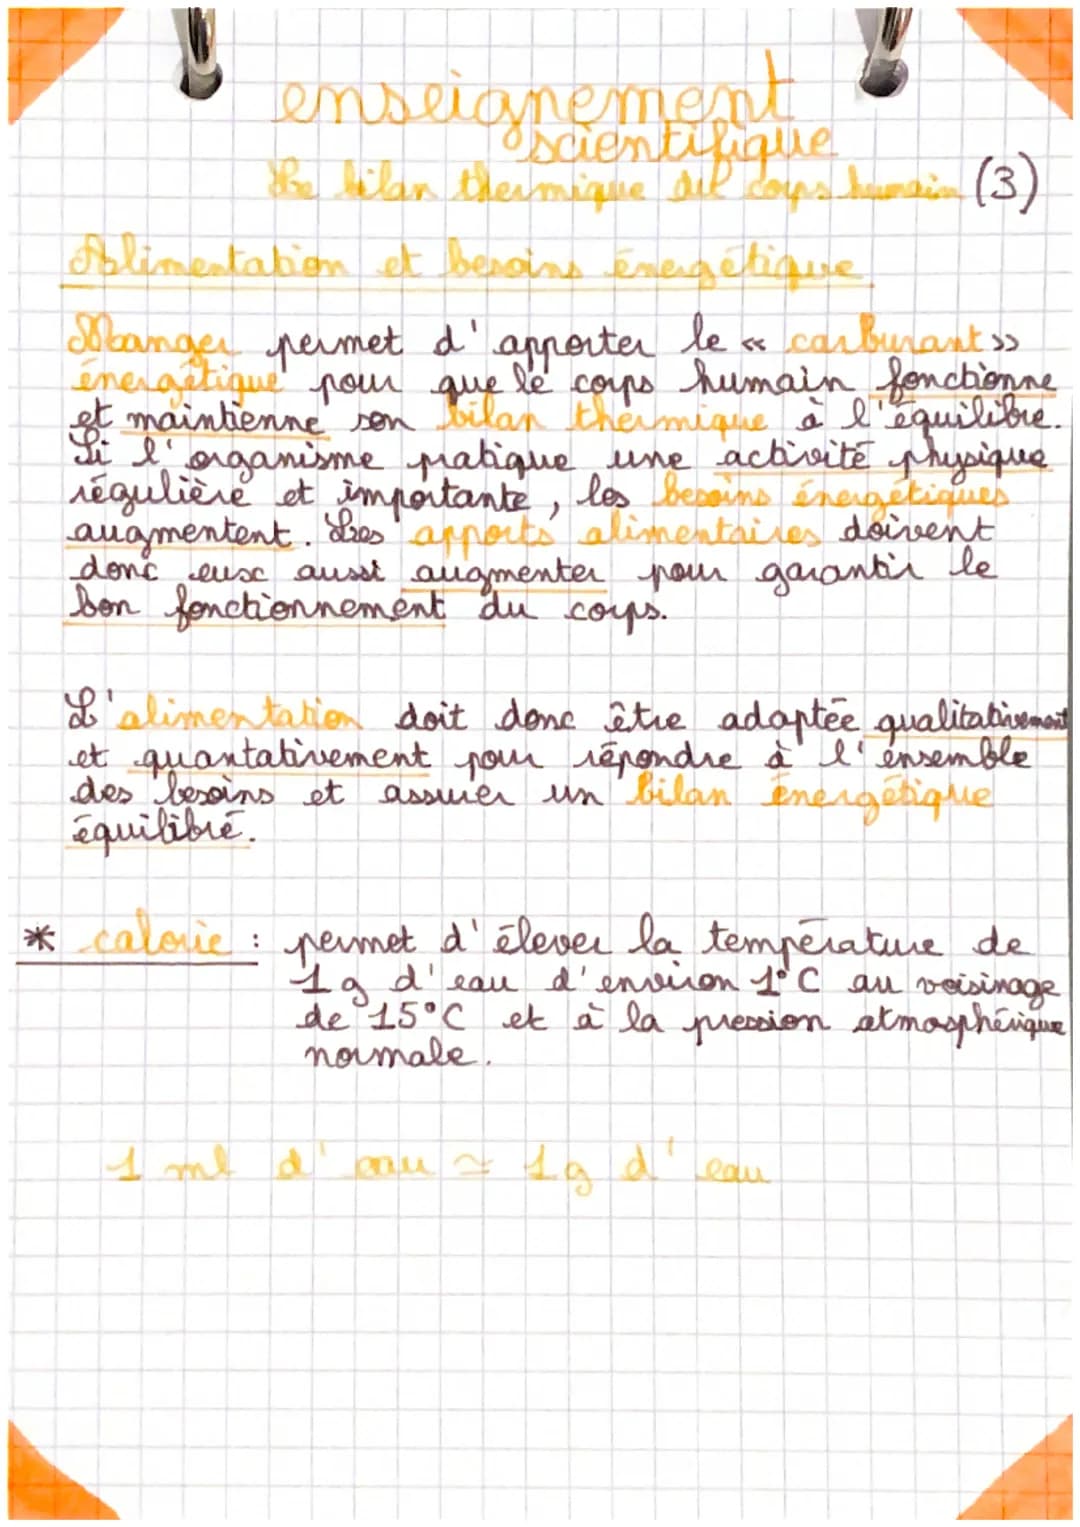 enseignement
scientifique
Le bilan thermique du corps humain (3)
Alimentation et besoins énergétique
Manger permet d'apporter le « carburant »
énergétique pour que le corps humain fonctionne
et maintienne son bilan thermique à l'équilibre.
Si l'organisme pratique une activité physique
régulière et importante, les besoins énergétiques
augmentent. Les apports alimentaires doivent
donc eux aussi augmenter pour garantir le
bon fonctionnement du corps.
L'alimentation doit donc être adaptée qualitativement
et quantativement pour répondre à l'ensemble
des besoins et assurer un bilan énergétique
équilibré.
* calorie : permet d'élever la température de
1g d'eau d'environ 1°C au voisinage
de 15°C et à la pression atmosphérique
normale.
1 ml d'eau ≃ 1g d'eau